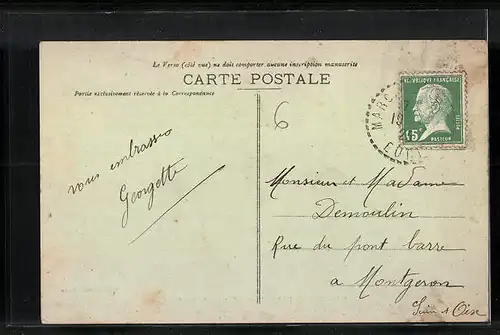 Le Verso (côté vue) ne doit comporter aucune inscription manuscrite
CARTE POSTALE
Partie exclusivement réservée à la Correspondance
6
RÉPUBLIQUE FRANÇAISE
POSTES
15
PASTEUR
MARC
15
EURE
vous embrasse
Georgette
Monsieur et Madame
Demoulin
Rue du pont barre
a Montgeron
Seine & Oise